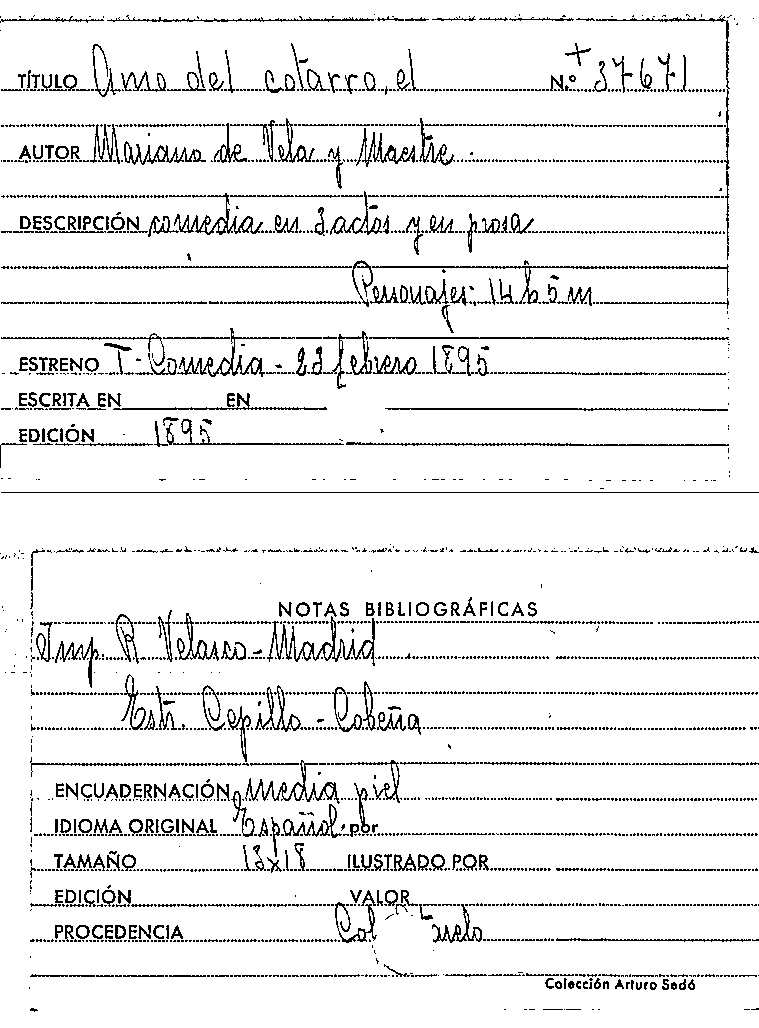 TÍTULO Amo del cotarro, el N.º + 37671
AUTOR Mariano de Vela y Maestre.
DESCRIPCIÓN comedia en 3 actos y en prosa
Personajes: 14 h 5 m
ESTRENO T-Comedia - 23 febrero 1895
ESCRITA EN EN
EDICIÓN 1895
NOTAS BIBLIOGRÁFICAS
Imp. R Velasco - Madrid
Estr. Cepillo - Cobeña
ENCUADERNACIÓN media piel
IDIOMA ORIGINAL Español. por
TAMAÑO 13x18 ILUSTRADO POR
EDICIÓN VALOR
PROCEDENCIA Col
Colección Arturo Sedó